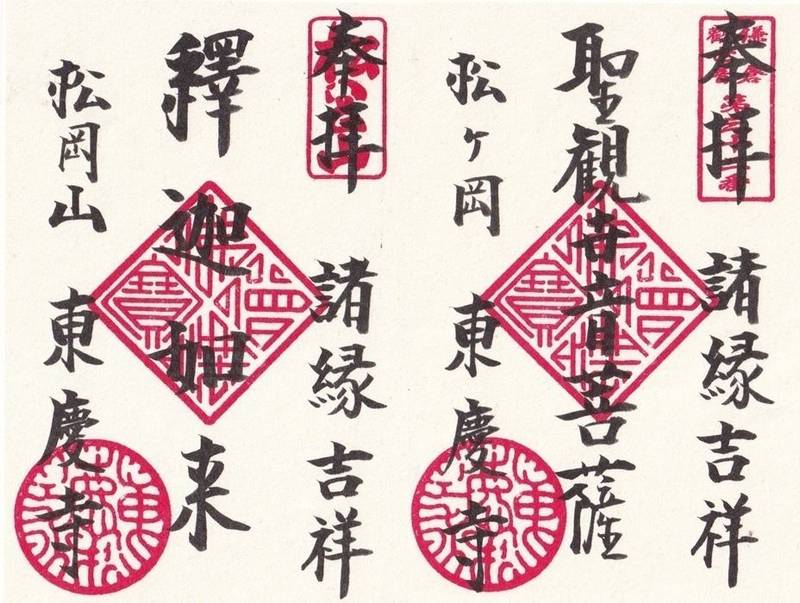 奉拝
諸縁吉祥
聖観世音菩薩
松ヶ岡 東慶寺
奉拝
諸縁吉祥
釋迦如来
松岡山 東慶寺